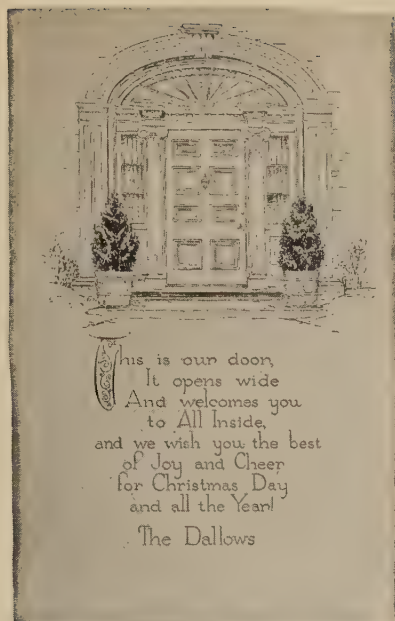 This is our door,
It opens wide
And welcomes you
to All Inside,
and we wish you the best
of Joy and Cheer
for Christmas Day
and all the Year!
The Dallows